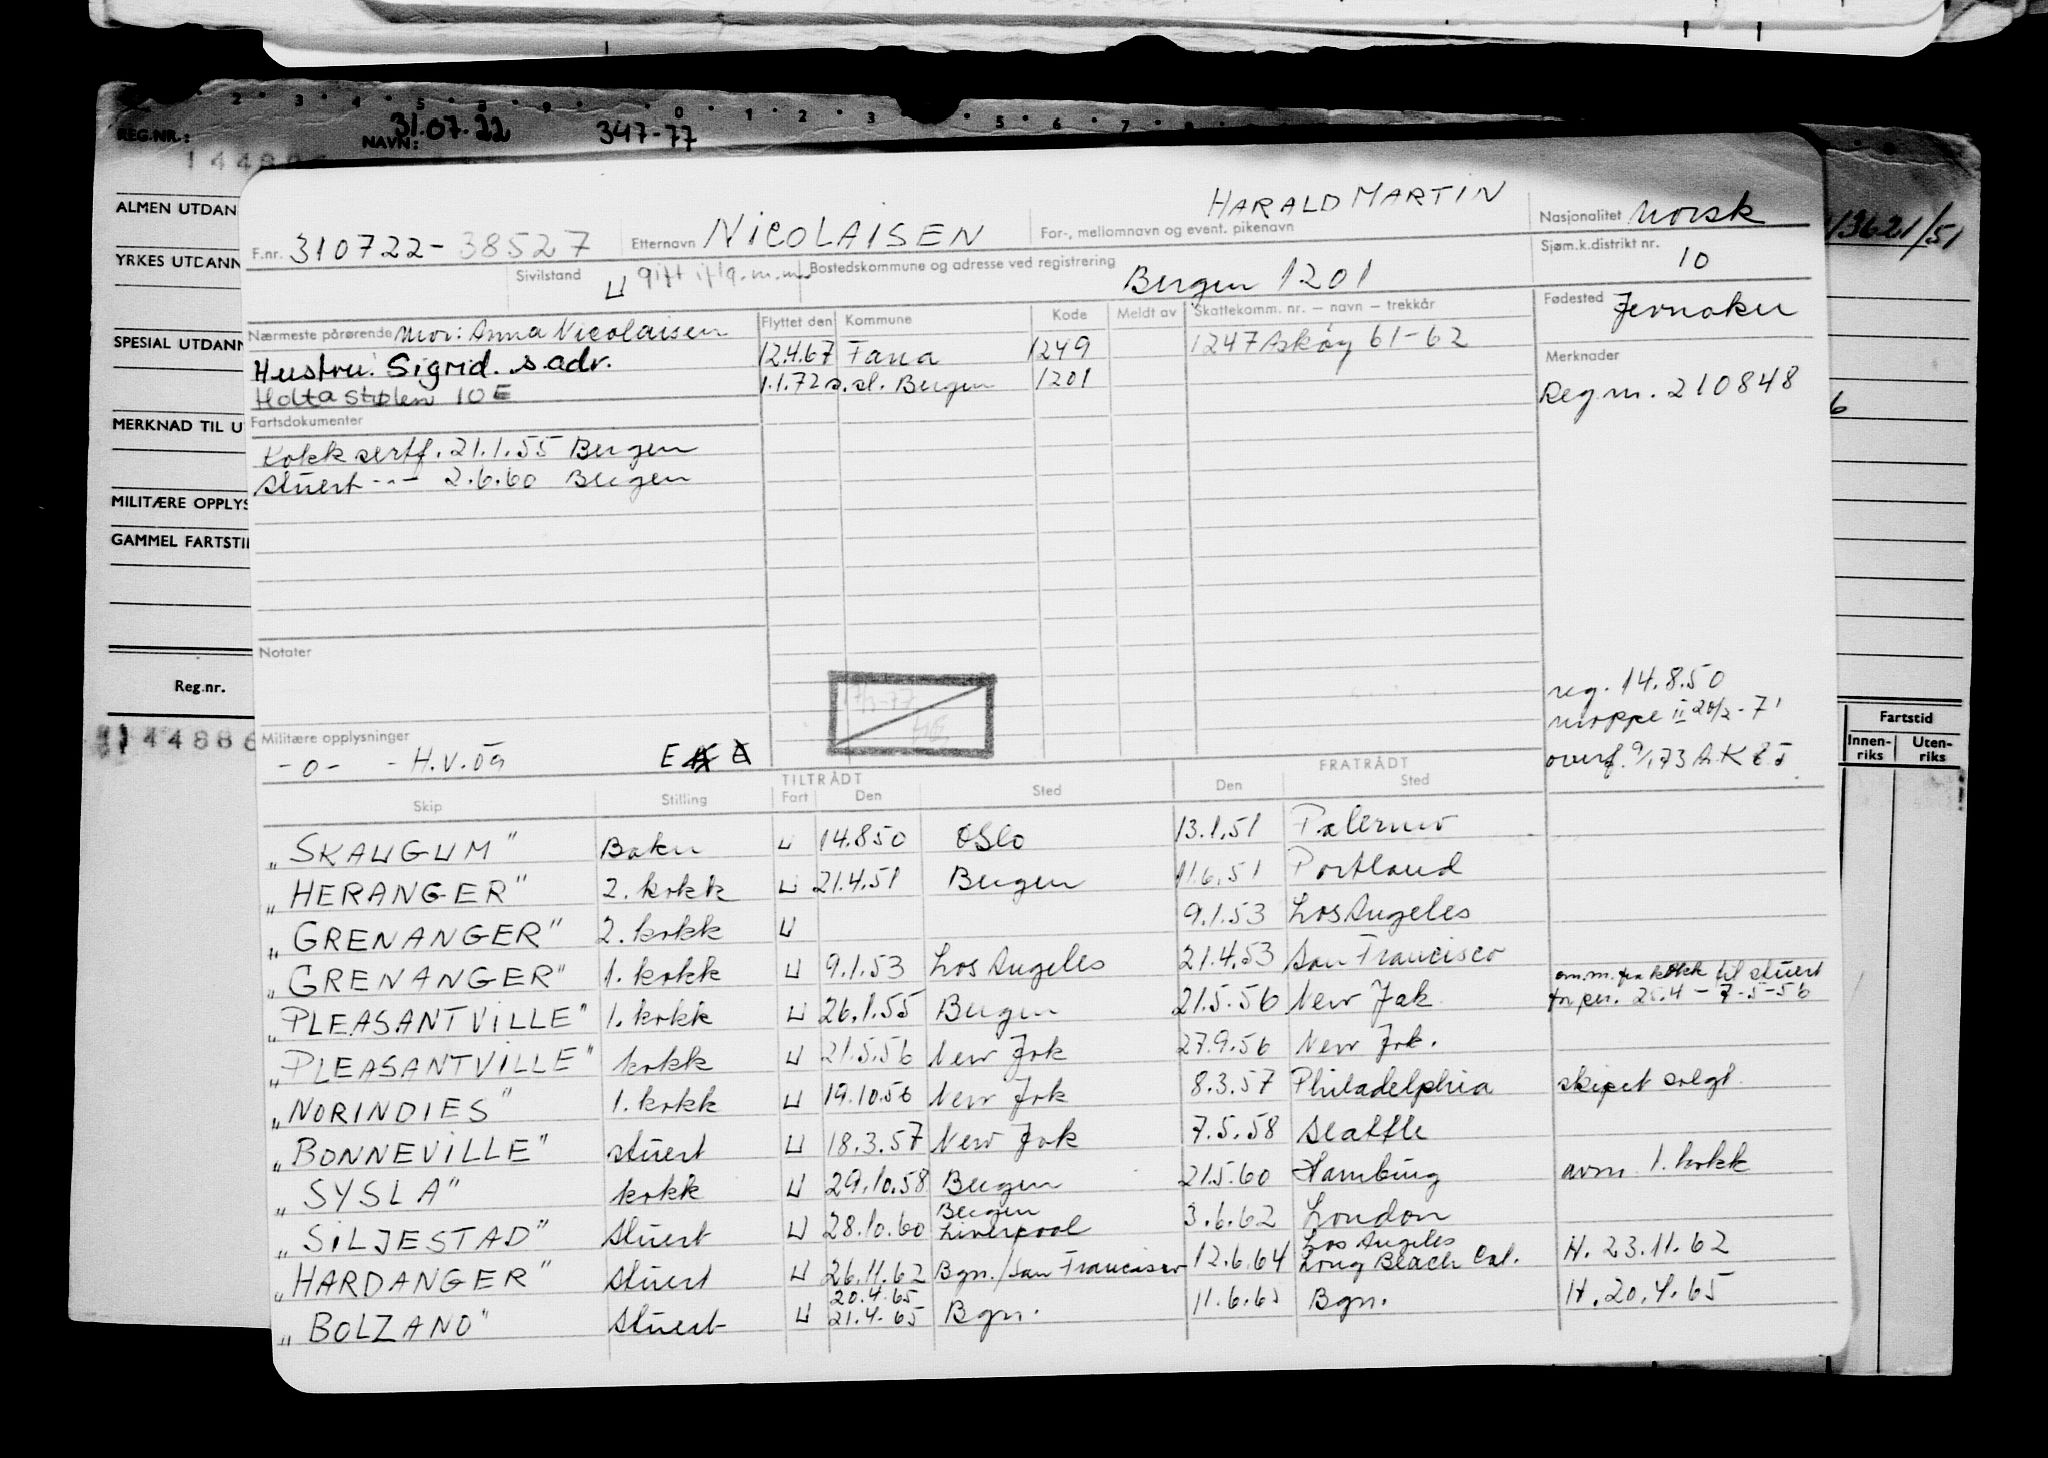 2 3 4 5 8 9 0 1 2 3 5 6 7 8
REG.NR.: NAVN: 31.07.22 347-77
ALMEN UTDAN
YRKES UTDANN
SPESIAL UTDANN
MERKNAD TIL U
MILITÆRE OPPLYS
GAMMEL FARTSTI
Reg.nr.
144886
13621/51
6
Fartstid
Innen-riks Uten-riks
F.nr. 310722-38527 Etternavn NICOLAISEN For-, mellomnavn og event. pikenavn HARALD MARTIN Nasjonalitet Norsk
Sivilstand U gift Bostedskommune og adresse ved registrering Bergen 1201 Sjøm.k.distrikt nr. 10
Nærmeste pårørende Mor: Anna Nicolaisen Flyttet den Kommune Kode Meldt av Skattekomm. nr. – navn – trekkår Fødested Jevnaker
Hustru: Sigrid. s.adr. 12.4.67 Fana 1249 1247 Askøy 61-62 Merknader
Holtastølen 10E 1.1.72 s.sl. Bergen 1201 Reg nr. 210848
Fartsdokumenter
Kokk sertf. 21.1.55 Bergen
Stuert -"- 2.6.60 Bergen
Notater
reg. 14.8.50
moppe II 20/2-71
overf. 9/1 73 A.K.
Militære opplysninger
-0- - H.V. ön E
TILTRÅDT FRATRÅDT
Skip Stilling Fart Den Sted Den Sted
"SKAUGUM" Baker U 14.8.50 Oslo 13.1.51 Palermo
"HERANGER" 2. kokk U 21.4.51 Bergen 11.6.51 Portland
"GRENANGER" 2. kokk U 9.1.53 Los Angeles
"GRENANGER" 1. kokk U 9.1.53 Los Angeles 21.4.53 San Francisco
"PLEASANTVILLE" 1. kokk U 26.1.55 Bergen 21.5.56 New Jork am.m. fra kokk til stuert for per. 25.4-7-5-56
"PLEASANTVILLE" kokk U 21.5.56 New Jork 27.9.56 New Jork.
"NORINDIES" 1. kokk U 19.10.56 New Jork 8.3.57 Philadelphia skipet solgt
"BONNEVILLE" stuert U 18.3.57 New Jork 7.5.58 Seattle
"SYSLA" kokk U 29.10.58 Bergen 21.5.60 Hamburg avm. 1. kokk
"SILJESTAD" Stuert U 28.10.60 Bergen Liverpool 3.6.62 London
"HARDANGER" Stuert U 26.11.62 Bgn./San Francisco 12.6.64 Los Angeles Long Beach Cal. H. 23.11.62
"BOLZANO" Stuert U 20.4.65 21.4.65 Bgn. 11.6.65 Bgn. H. 20.4.65